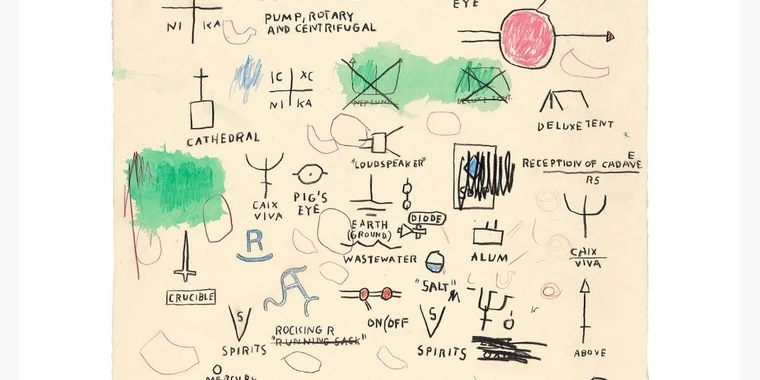 EYE
NI KA
PUMP, ROTARY
AND CENTRIFUGAL
IC XC
NI KA
NEPTUNE
DELUXE TENT
DELUXE TENT
CATHEDRAL
"LOUDSPEAKER"
RECEPTION OF CADAVE
E
RS
CAIX
VIVA
PIG'S
EYE
EARTH
(GROUND)
DIODE
R
WASTEWATER
ALUM
CAIX
VIVA
CRUCIBLE
"SALT"
A
S
SPIRITS
ROCKING R
"RUNNING SACK"
ON/OFF
S
SPIRITS
ABOVE
MERCURY